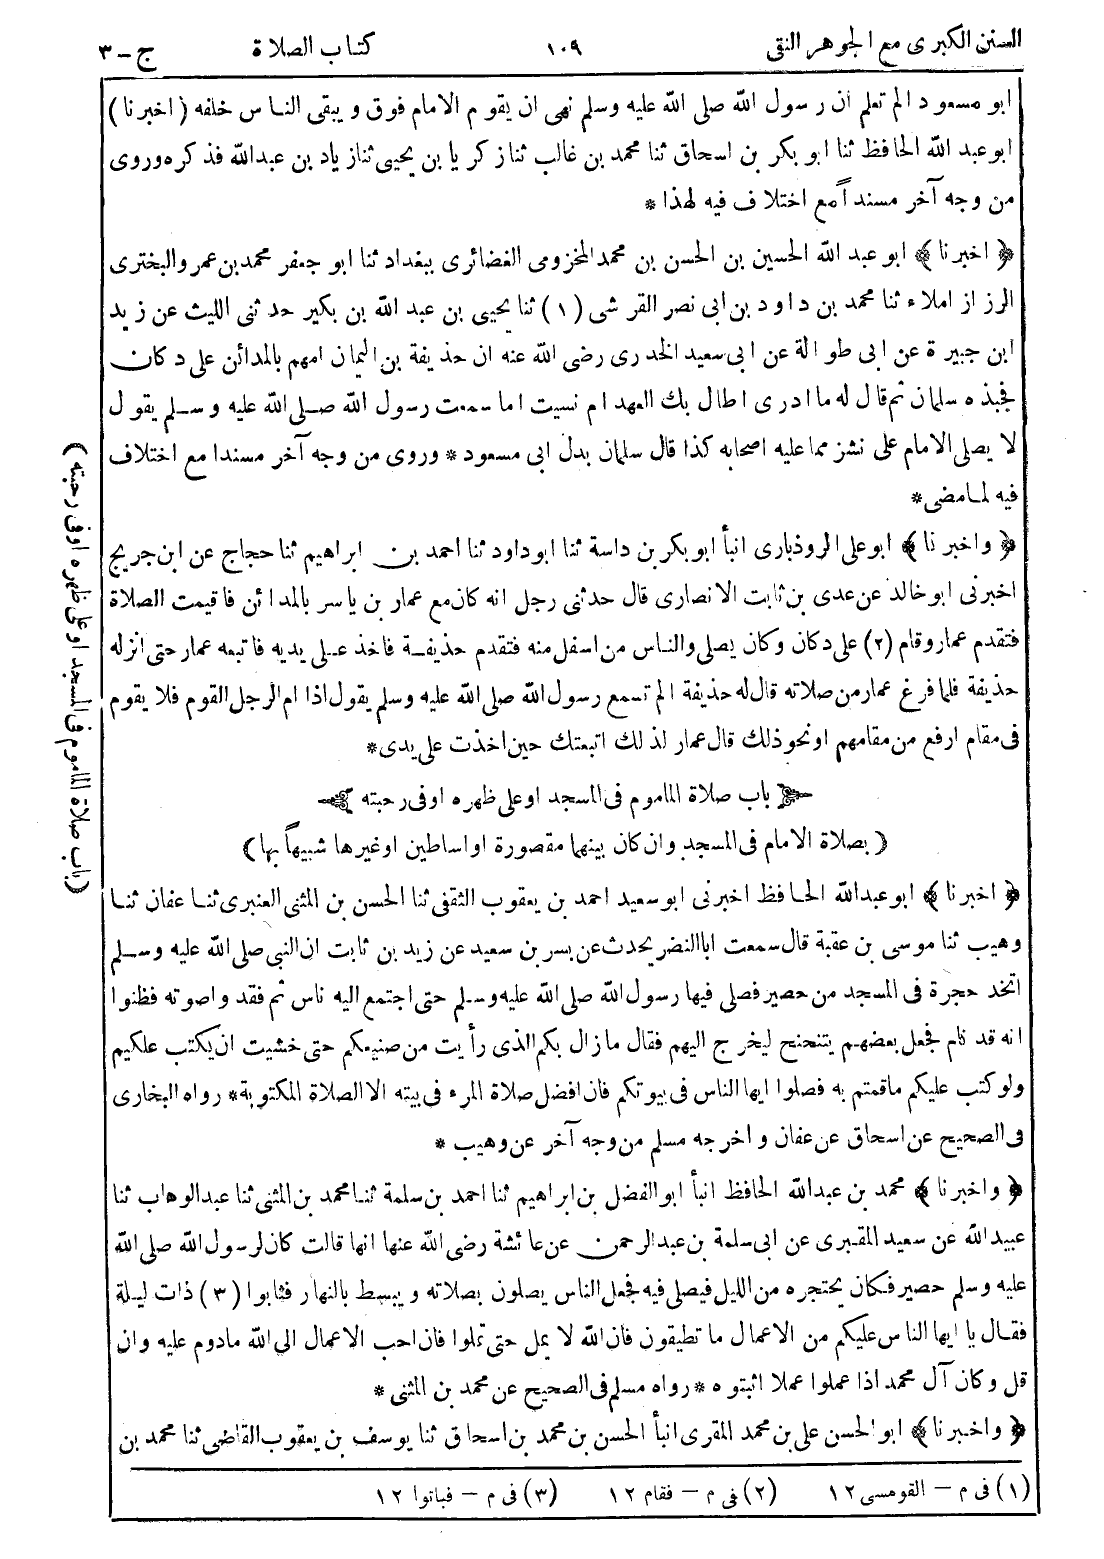 السنن الكبرى مع الجوهر النقى ١٠٩ كتاب الصلاة ج-٣
ابو مسعود الم تعلم ان رسول الله صلى الله عليه وسلم نهى ان يقوم الامام فوق ويبقى الناس خلفه (اخبرنا)
ابو عبد الله الحافظ ثنا ابو بكر بن اسحاق ثنا محمد بن غالب ثنا زكريا بن يحيى ثنا زياد بن عبدالله فذكره وروى
من وجه آخر مسنداً مع اختلاف فيه لهذا *
﴿ اخبرنا ﴾ ابو عبد الله الحسين بن الحسن بن محمد المخزومى الغضائرى ببغداد ثنا ابو جعفر محمد بن عمرو البخترى
الرزاز املاء ثنا محمد بن داود بن ابى نصر القرشى (١) ثنا يحيى بن عبد الله بن بكير حدثنى الليث عن زيد
ابن جبيرة عن ابى طوالة عن ابى سعيد الخدرى رضى الله عنه ان حذيفة بن اليمان امهم بالمدائن على دكان
فجبذه سلمان ثم قال له ما ادرى اطال بك العهد ام نسيت اما سمعت رسول الله صلى الله عليه وسلم يقول
لا يصلى الامام على نشز مما عليه اصحابه كذا قال سلمان بدل ابى مسعود * وروى من وجه آخر مسندا مع اختلاف
فيه لما مضى *
﴿ واخبرنا ﴾ ابو على الروذبارى انبأ ابو بكر بن داسة ثنا ابو داود ثنا احمد بن ابراهيم ثنا حجاج عن ابن جريج
اخبرنى ابو خالد عن عدى بن ثابت الانصارى قال حدثنى رجل انه كان مع عمار بن ياسر بالمدائن فاقيمت الصلاة
فتقدم عمار وقام (٢) على دكان وكان يصلى والناس من اسفل منه فتقدم حذيفة فاخذ على يديه فاتبعه عمار حتى انزله
حذيفة فلما فرغ عمار من صلاته قال له حذيفة الم تسمع رسول الله صلى الله عليه وسلم يقول اذا ام الرجل القوم فلا يقوم
فى مقام ارفع من مقامهم او نحو ذلك قال عمار لذلك اتبعتك حين اخذت على يدى *
باب صلاة الماموم فى المسجد او على ظهره او فى رحبته
(بصلاة الامام فى المسجد وان كان بينهما مقصورة او اساطين او غيرها شبيهاً بها)
﴿ اخبرنا ﴾ ابو عبدالله الحافظ اخبرنى ابو سعيد احمد بن يعقوب الثقفى ثنا الحسن بن المثنى العنبرى ثنا عفان ثنا
وهيب ثنا موسى بن عقبة قال سمعت ابا النضر يحدث عن بسر بن سعيد عن زيد بن ثابت ان النبى صلى الله عليه وسلم
اتخذ حجرة فى المسجد من حصير فصلى فيها رسول الله صلى الله عليه وسلم حتى اجتمع اليه ناس ثم فقدوا صوته فظنوا
انه قد نام فجعل بعضهم يتنحنح ليخرج اليهم فقال ما زال بكم الذى رأيت من صنيعكم حتى خشيت ان يكتب علكيم
ولو كتب عليكم ما قمتم به فصلوا ايها الناس فى بيوتكم فان افضل صلاة المرء فى بيته الا الصلاة المكتوبة * رواه البخارى
فى الصحيح عن اسحاق عن عفان واخرجه مسلم من وجه آخر عن وهيب *
﴿ واخبرنا ﴾ محمد بن عبدالله الحافظ انبأ ابو الفضل بن ابراهيم ثنا احمد بن سلمة ثنا محمد بن المثنى ثنا عبدالوهاب ثنا
عبيد الله عن سعيد المقبرى عن ابى سلمة بن عبدالرحمن عن عائشة رضى الله عنها انها قالت كان لرسول الله صلى الله
عليه وسلم حصير فكان يحتجره من الليل فيصلى فيه فجعل الناس يصلون بصلاته ويبسط بالنهار فثابوا (٣) ذات ليلة
فقال يا ايها الناس عليكم من الاعمال ما تطيقون فان الله لا يمل حتى تملوا فان احب الاعمال الى الله مادوم عليه وان
قل وكان آل محمد اذا عملوا عملا اثبتوه * رواه مسلم فى الصحيح عن محمد بن المثنى *
﴿ واخبرنا ﴾ ابو الحسن على بن محمد المقرى انبأ الحسن بن محمد بن اسحاق ثنا يوسف بن يعقوب القاضى ثنا محمد بن
(١) فى م – القومسى ١٢ (٢) فى م – فقام ١٢ (٣) فى م – فباتوا ١٢
(باب صلاة الماموم فى المسجد او على ظهره اوفى رحبته)